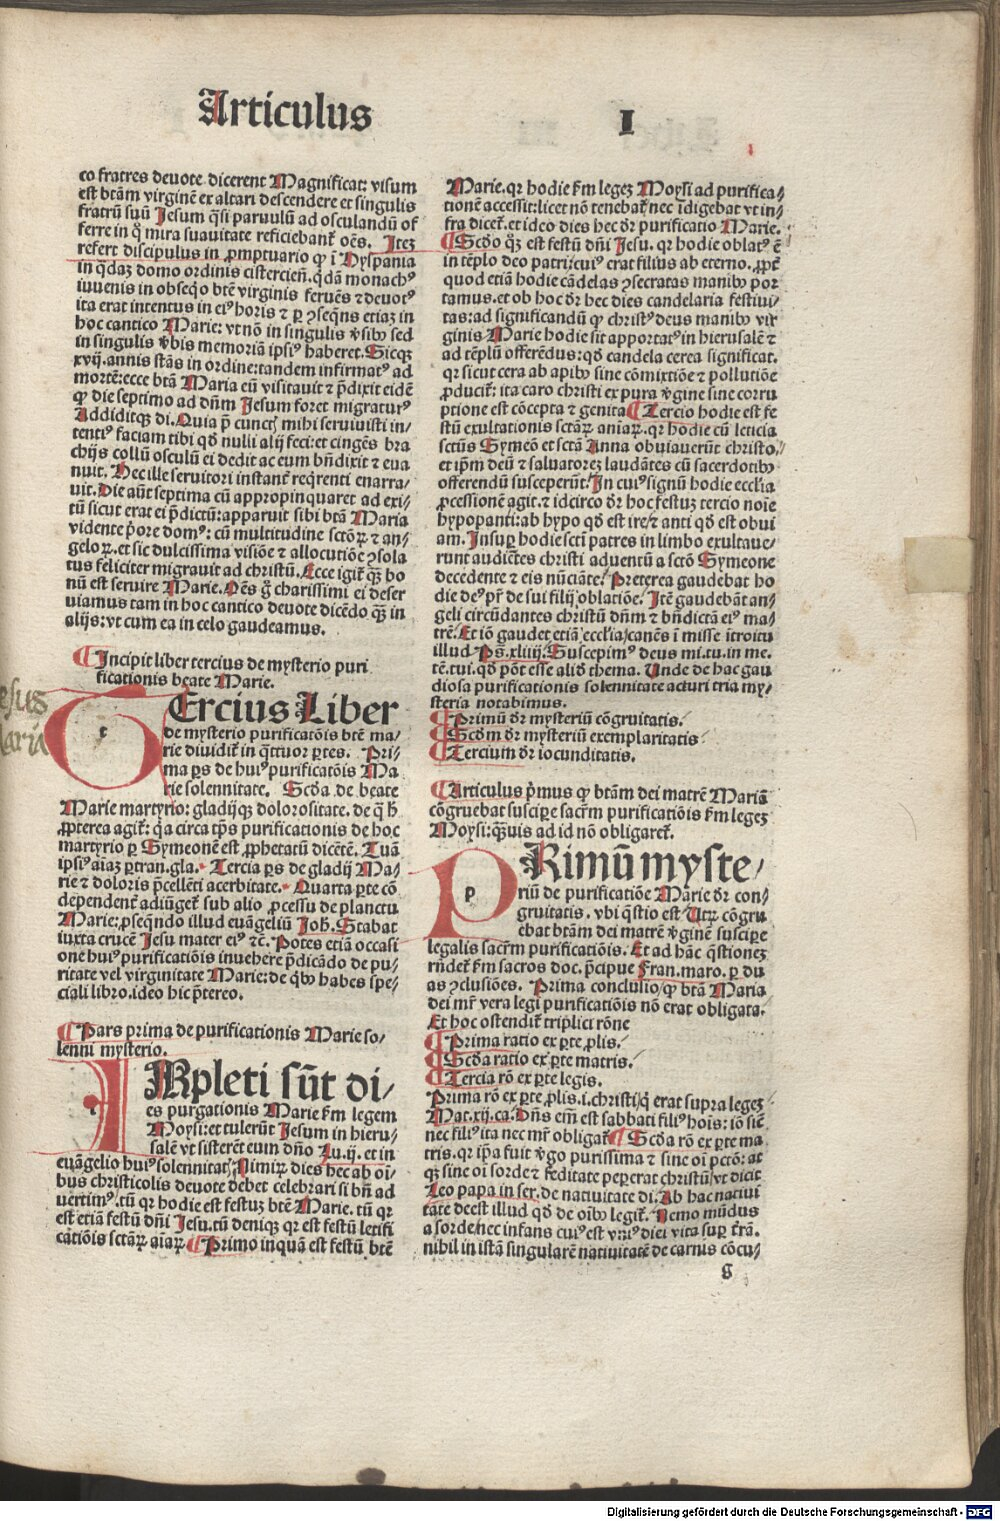 Articulus
I
co fratres deuote dicerent Magnificat: visum
est btãm virginẽ ex altari descendere et singulis
fratrũ suũ Jesum q̃si paruulũ ad osculandũ of
ferre in q̃ mira suauitate reficiebanť oẽs. Iteȝ
refert discipulus in ꝓmptuario ꝙ ĩ Hyspania
in q̃daȝ domo ordinis cistercieñ. q̃dã monachꝰ
iuuenis in obseq̃o btẽ virginis feruẽs ⁊ deuotꝰ
ita erat intentus in eiꝰ horis ⁊ ꝑ ꝯseq̃ns etiaȝ in
hoc cantico Marie: vt nõ in singulis ꝟsibꝰ sed
in singulis ꝟbis memoriã ipsiꝰ haberet. Sicqȝ
xvij. annis stãs in ordine: tandem infirmatꝰ ad
mortẽ: ecce btã Maria eũ visitauit ⁊ p̃dixit eidẽ
ꝙ die septimo ad dñm Jesum foret migraturꝰ
Addiditqȝ di. Quia p̃ cunctȷ mihi seruiuisti in-
tentiꝰ faciam tibi qđ nulli alij feci: et cingẽs bra
chijs collũ osculũ ei dedit ac eum bñdixit ⁊ eua
nuit. Hec ille seruitori instanť req̃renti enarra-
uit. Die aũt septima cũ appropinquaret ad exi-
tũ sicut erat ei p̃dictũ: apparuit sibi btã Maria
vidente p̃ore domꝰ: cũ multitudine sctõꝝ ⁊ an-
geloꝝ. et sic dulcissima visiõe ⁊ allocutiõe ꝯsola
tus feliciter migrauit ad christũ. Ecce igiť q̃ȝ bo
nũ est seruire Marie. Oẽs g̃ charissimi ei deser
uiamus tam in hoc cantico deuote dicẽdo q̃ȝ in
alijs: vt cum ea in celo gaudeamus.
¶Incipit liber tercius de mysterio puri
ficationis beate Marie.
esus
aria
TErcius Liber
de mysterio purificatõis btẽ ma-
rie diuidiť in q̃ttuor ꝑtes. Pri-
ma ꝑs de huiꝰ purificatõis Ma
rie solennitate. Scđa de beate
Marie martyrio: gladijqȝ dolorositate. de q̃ h̃
ꝓpterea agiť: q̃a circa tp̃s purificationis de hoc
martyrio ꝑ Symeonẽ est ꝓphetatũ dicẽtẽ. Tuã
ipsiꝰ aĩaȝ ꝑtran. gla. Tercia ꝑs de gladij Ma-
rie ⁊ doloris p̃cellẽti acerbitate. Quarta ꝑte cõ
dependent̃ adiũgeť sub alio ꝓcessu de planctu
Marie: ꝓseq̃ndo illud euãgeliũ Joh̃. Stabat
iuxta crucẽ Jesu mater eiꝰ ⁊c̃. Potes etiã occasi
one huiꝰ purificatiõis inuehere p̃dicãdo de pu-
ritate vel virginitate Marie: de q̃bꝰ habes spe-
ciali libro. ideo hic p̃tereo.
¶Pars prima de purificationis Marie so-
lenni mysterio.
IMpleti sũt di-
es purgationis Marie f̃m legem
Moysi: et tulerũt Jesum in hieru-
salẽ vt sisterẽt eum dño Lu. ij. et in
euãgelio huiꝰ solennitatȷ. Nimiꝝ dies hec ab oĩ-
bus christicolis deuote debet celebrari si bñ ad
uertimꝰ. tũ qꝛ hodie est festuȝ btẽ Marie. tũ qꝛ
est etiã festũ dñi Jesu. tũ deniqȝ qꝛ est festũ letifi
catiõis sctãꝝ aĩaꝝ. ¶Primo inquã est festũ btẽ
Marie. qꝛ hodie f̃m legeȝ Moysi ad purifica-
tionẽ accessit: licet nõ tenebať nec ĩdigebat vt in-
fra diceť. et ideo dies hec đr purificatio Marie.
¶Scđo q̃ȝ est festũ dñi Jesu. qꝛ hodie oblatꝰ ẽ
in tẽplo deo patri: cuiꝰ erat filius ab eterno. ꝓpť
quod etiã hodie cãdelas ꝯsecratas manibꝰ por
tamus. et ob hoc đr hec dies candelaria festiui-
tas: ad significandũ ꝙ christꝰ deus manibꝰ vir
ginis Marie hodie sit apportatꝰ in hierusalẽ ⁊
ad tẽplũ offerẽdus: qđ candela cerea significat.
qꝛ sicut cera ab apibꝰ sine cõmixtiõe ⁊ pollutiõe
ꝓduciť: ita caro christi ex pura ꝟgine sine corru
ptione est cõcepta ⁊ genita ¶Tercio hodie est fe
stũ exultationis sctãꝝ aniaꝝ. qꝛ hodie cũ leticia
sctũs Symeõ et sctã Anna obuiauerũt christo.
et ip̃m deũ ⁊ saluatoreȝ laudãtes cũ sacerdotibꝰ
offerendũ susceperũt. In cuiꝰ signũ hodie eccl̃ia
ꝓcessionẽ agit. ⁊ idcirco đr hoc festuȝ tercio noĩe
hypopanti: ab hypo qđ est ire/⁊ anti qđ est obui
am. Insuꝑ hodie sctĩ patres in limbo exultaue-
runt audiẽtes christi aduentũ a sctõ Symeone
decedente ⁊ eis nũciãte. Preterea gaudebat ho
die deꝰ pr̃ de sui filij oblatiõe. Itẽ gaudebãt an-
geli circũdantes christũ dñm ⁊ bñdictã eiꝰ ma-
trẽ. Et iõ gaudet etiã eccl̃ia/canẽs ĩ misse ĩtroitu
illud Ps̃. xliij. Suscepimꝰ deus mi. tu. in me.
tẽ. tui. qđ põt esse aliđ thema. Unde de hac gau
diosa purificationis solennitate acturi tria my-
steria notabimus.
¶Primũ đr mysteriũ cõgruitatis.
¶Scđm đr mysteriũ exemplaritatis
¶Tercium đr iocunditatis.
¶Articulus p̃mus ꝙ btãm dei matrẽ Mariã
cõgruebat suscipe sacr̃m purificatiõis f̃m legeȝ
Moysi: q̃uis ad id nõ obligareť.
PRimũ myste-
riũ de purificatiõe Marie đr con-
gruitatis. vbi q̃stio est/ Utꝝ cõgru
ebat btãm dei matrẽ ꝟginẽ suscipe
legalis sacr̃m purificatiõis. Et ad hãc q̃stioneȝ
rñdeť f̃m sacros doc. p̃cipue Fran. maro. ꝑ du
as ꝯclusiões. Prima conclusio/ꝙ btã Maria
dei mr̃ vera legi purificatiõis nõ erat obligata.
Et hoc ostendiť triplici rõne
¶Prima ratio ex ꝑte ꝓlis.
¶Scđa ratio ex ꝑte matris.
¶Tercia rõ ex ꝑte legis.
Prima rõ ex ꝑte ꝓlis. i. christi/q̃ erat supra legeȝ
Mat. xij. ca. Dñs em̃ est sabbati filiꝰ hoĩs: iõ sic̃
nec filiꝰ ita nec mr̃ obligať ¶Scđa rõ ex ꝑte ma
tris. qꝛ ip̃a fuit ꝟgo purissima ⁊ sine oĩ pctõ: at
qȝ sine oĩ sorde ⁊ feditate peperat christũ/vt dicit
Leo papa in ser. de natiuitate di. Ab hac natiui
tate deest illud qđ de oĩbꝰ legiť. Nemo mũdus
a sorde/nec infans cuiꝰ est vniꝰ diei vita suꝑ t̃rã.
nihil in istã singularẽ natiuitatẽ de carnis cõcu-
g
Digitalisierung gefördert durch die Deutsche Forschungsgemeinschaft - DFG